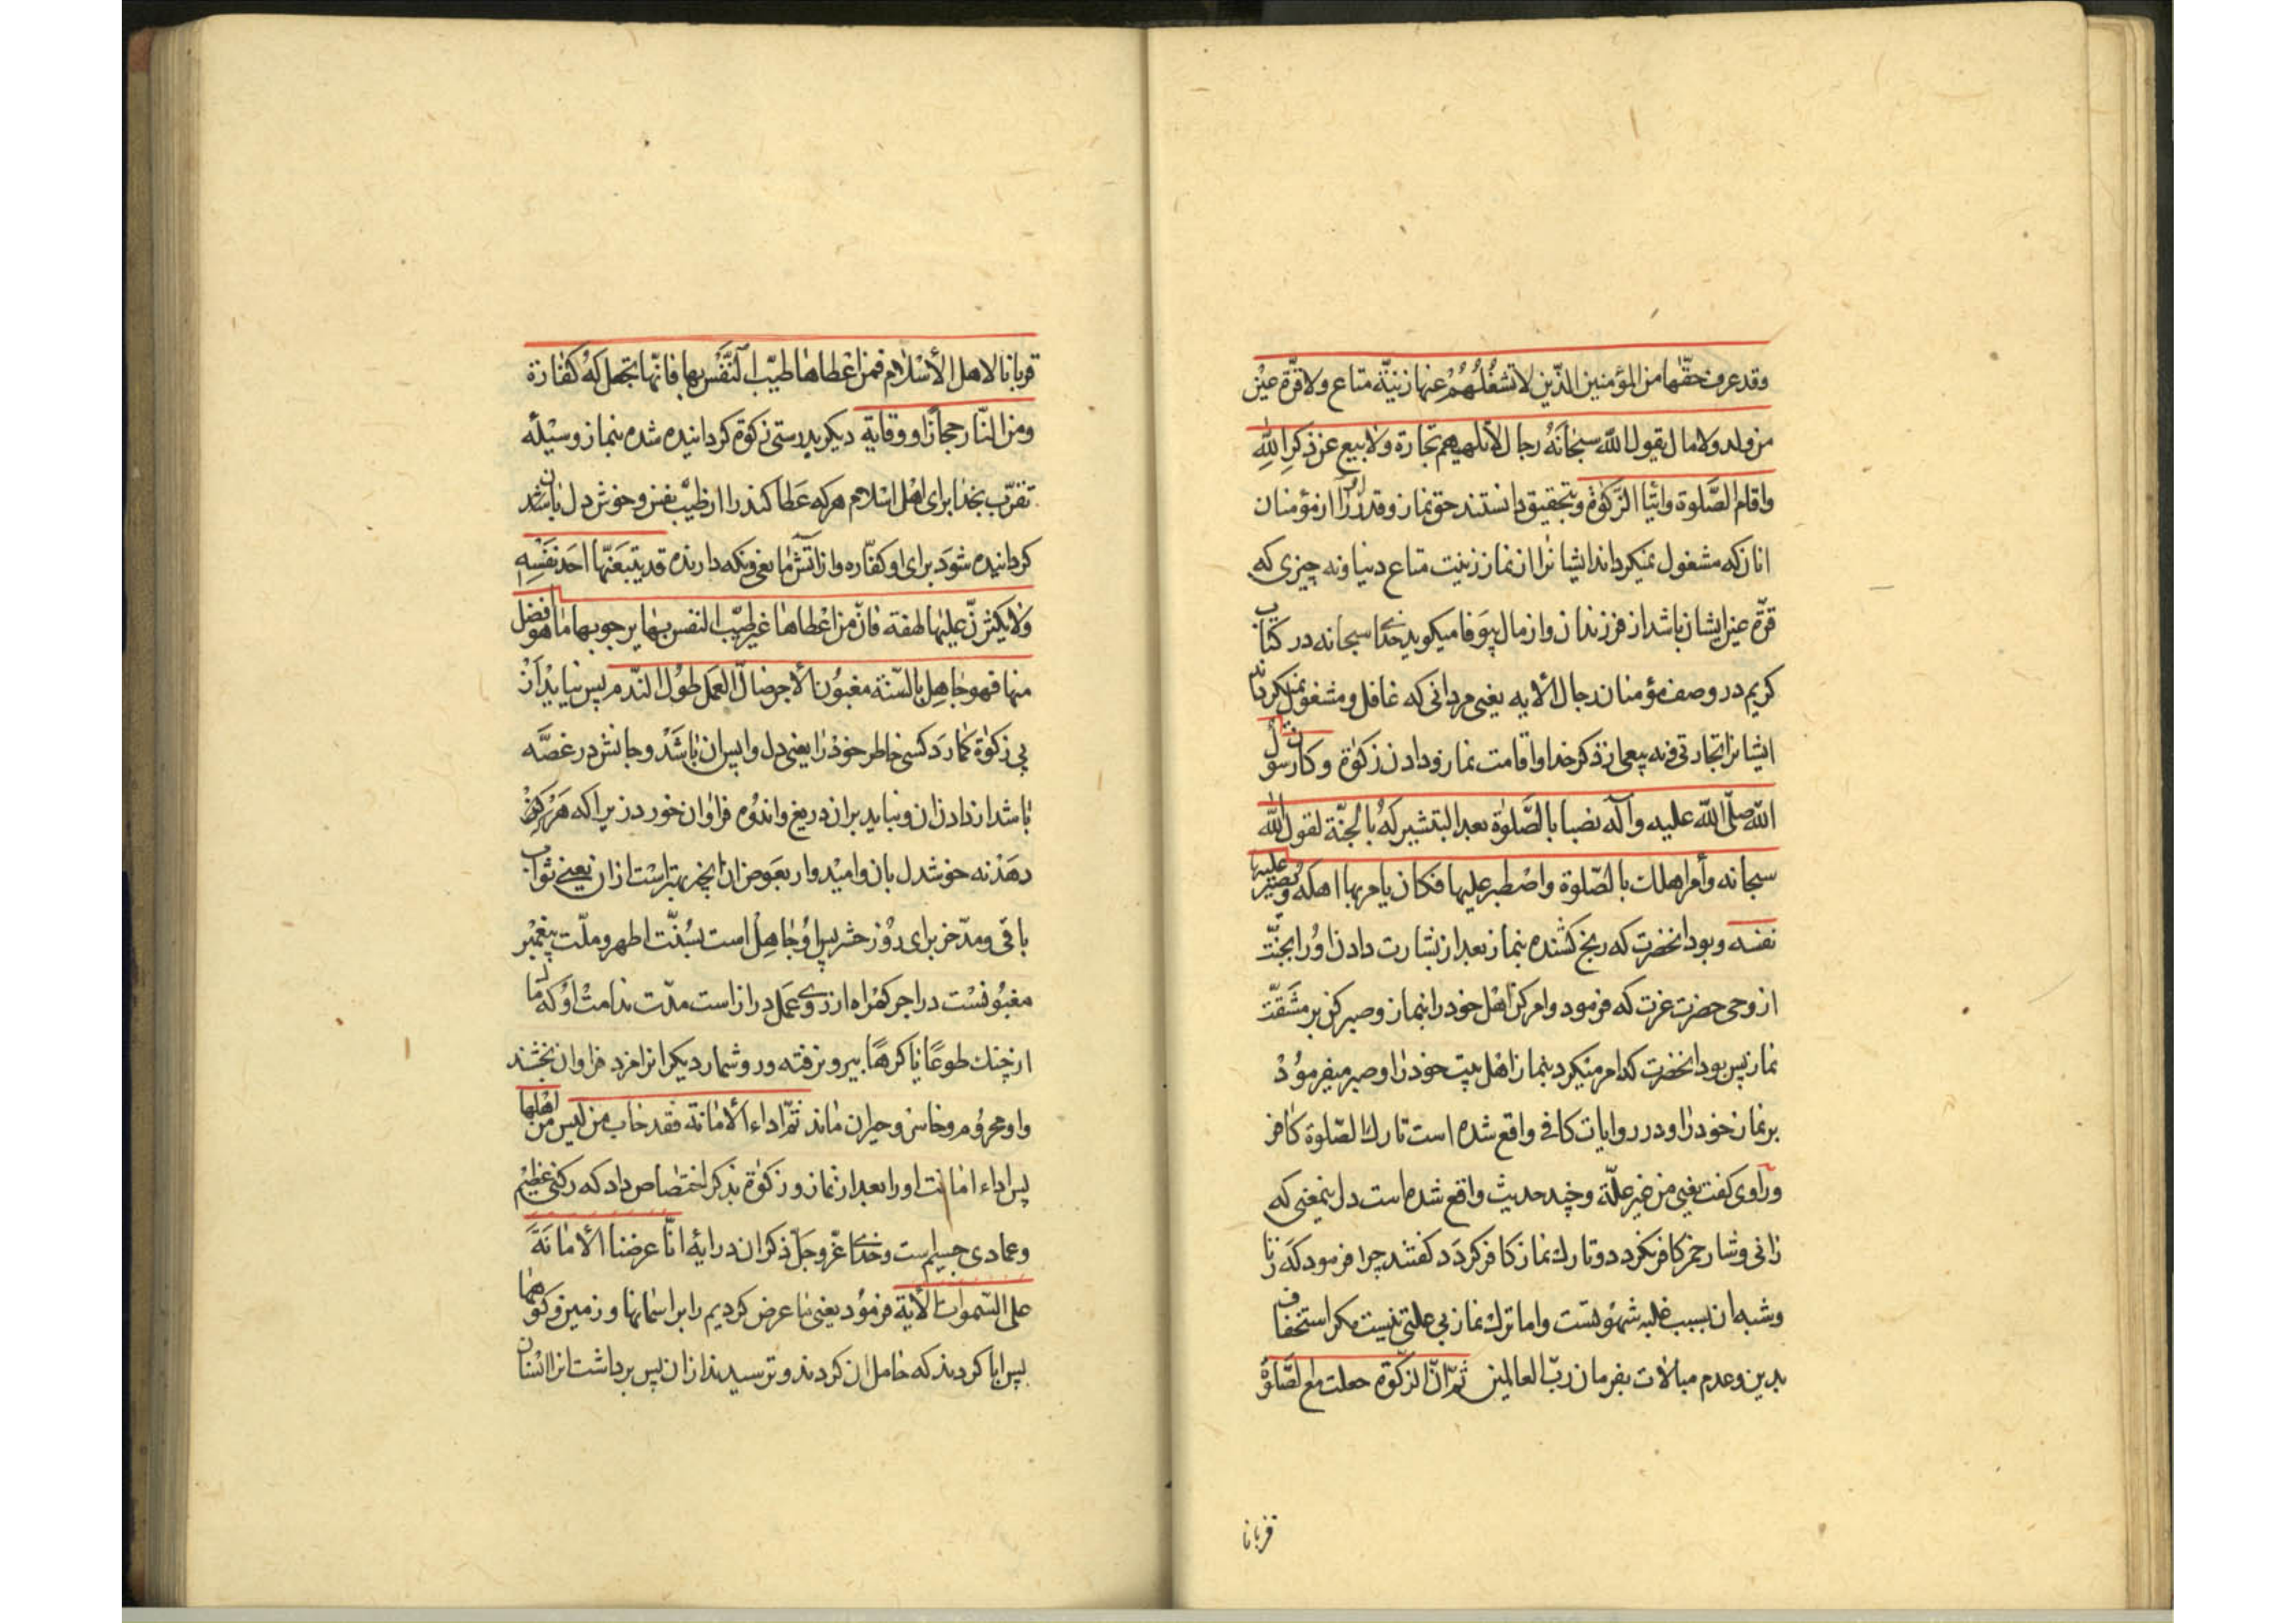 وقد عرف حقّها من المؤمنین الذّین لا تشغلُهُمُ عنها زینة متاع ولا قرّة عین
من ولد ولا مال یقول اللّه سبحانَهُ رجال لا تلهیهم تجارة ولا بیع عن ذکرِ اللّٰهِ
واقام الصَّلوة وایتاا الزّکوٰة وبتحقیق دانستند حق نماز و قدر آنرا از مؤمنان
انان که مشغول نمیکرداند ایشانرا از نماز زینت متاع دنیا و نه چیزی که
قرّة عین ایشان باشد از فرزندان و از مال بیوفا میکوید خدای سبحانه در کتاب
کریم در وصف مؤمنان رجال الایه یعنی مردانی که غافل و مشغول نمیکرداند
ایشانرا تجارتی و نه بیعی از ذکر خدا و اقامت نماز و دادن زکوٰة وکان رسول
اللّه صلّی اللّه علیه وآله نصبا بالصَّلوٰة بعد التبشیر لَهُ بالجنّة لقول اللّٰه
سبحانه وأمر اهلك بالصّلوة واصْطبر علیها فکان یامر بها اهله ویصبر علیها
نفسه وبود انحضرت که رنج کشنده بنماز بعد از بشارت دادن اوُ را بجنّت
از وحی حضرت عزت که فرمود وامر کن اهْل خود را بنماز و صبر کن بر مشَقّت
نماز پس بود انحضرت که امر میکرد بنماز اهْل بیت خود رٰا و صبر میفرموُدْ
بر نماز خود رٰا و در روایات کافی واقع شده است تارك الصّلوة کافر
ورٰاوی کفت یعنی من غیر علّة و چند حدیث واقع شده است دل بنمعنی که
زانی و شارب خمر کافر نکردد و تارك نماز کافر کردَد کفتند چرا فرمود که زنا
و شبه ان بسبب غلبه شهوْتست و اما ترك نماز بی علتی نیست مکر استخفاف
بدین و عدم مبالٰات بفرمان ربّ العالمین ثمّ انّ الزّکوٰة جعلت مع الصَّلوٰة
قربانا
قربانا لاهل الأسْلٰام فمن اعْطاهٰا طیّب النَّفْس بها فانّها تجعل لهُ کفّارة
ومن النّار حجازًا و وقایة دیکر بدرستی زکوٰة کردانیده شده بنماز وسیْله
تقرّب بخدا برای اهْل اسْلام هر که عَطا کند را از طیْب نفس و خوش دل بان باشد
کردانیده شوَد برای او کفّاره و از آتش مٰانعی و نکه دارنده فلا یتبعَنّها احَد نفَسِه
ولٰا یکثرنّ علیْها لهفة فانّ من اعْطاهٰا غیر طیّب النفس بهٰا یرجو بها مٰا هو افضل
منها فهو جٰاهِل بالسّنة مغبُوُن الأجر ضالّ العمل طوُل النّدم پس نبایَد آنْ
پی زکوٰة کمارَد کسی خاطر خودْ رٰا یعنی دل واپس ان بٰاشَدْ و جانش در غصَّه
باشد از دادن ان و نباید بر ان دریغ و اندوُه فراوان خورد زیرا که هَرْکِهْ
دهَدْ نه خوشدل بان و امیْدوار بعَوض ان انچه بهتر اسْت ازان یعنی ثواب
باقی و مدّخر برای روُز حشر پس اوُ جٰاهِلْ است بسُنّت اطهر و ملّت پیغمْبر
مغبوُنسْت در اجر کمْراه از روی عَمَل دراز است مدّت ندامتْ اوُ که مال
از چنك طوعًا یا کرهًا بیرون رفته و در وشمار دیکر انرا مزد فراوان بخشند
و او محروُم و خاسر و حیران مٰاند ثمّ اداء الأمٰانة فقد خاب من لیس من اهْلها
پس اداء امٰانت او را بعد از نماز و زکوٰة بذکر اختصٰاص داد که رکنی عظیْم
و عمادی جسیم است و خدای عزّ وجلّ ذکر ان در ایه انّا عرضنا الأمٰانَةَ
علی السّموات الأیة فرموُد یعنی مٰا عرض کردیم را بر اسْمانها و زمین و کوهْهٰا
پس ابا کردند که حٰامل ان کردند و ترسیدند ازان پس برداشت انرا انسْان